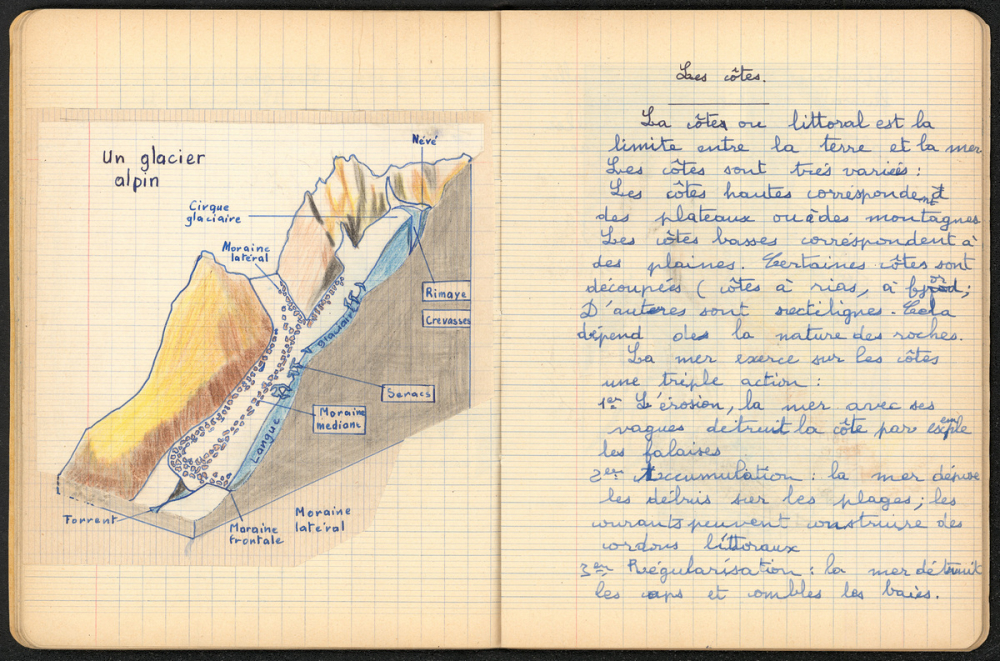 Un glacier
alpin
Névé
Cirque
glaciaire
Moraine
latéral
Rimaye
Crevasses
glaciaire
Seracs
Moraine
mediane
Langue
Torrent
Moraine
frontale
Moraine
latéral
Les côtes.
La côtes ou littoral est la
limite entre la terre et la mer
Les côtes sont trés variés :
Les côtes hautes correspondent
des plateaux ou à des montagnes
Les côtes basses correspondent à
des plaines. Certaines côtes sont
découpées ( côtes à rias, à fjord ;
D'autres sont rectilignes. Cela
dépend des la nature des roches.
La mer exerce sur les côtes
une triple action :
1er L'érosion, la mer avec ses
vagues détruit la côte par exemple
les falaises
2em Accumulation : la mer dépose
les débris sur les plages ; les
courants peuvent construire des
cordons littoraux
3em Régularisation : la mer détruit
les caps et combles les baies.